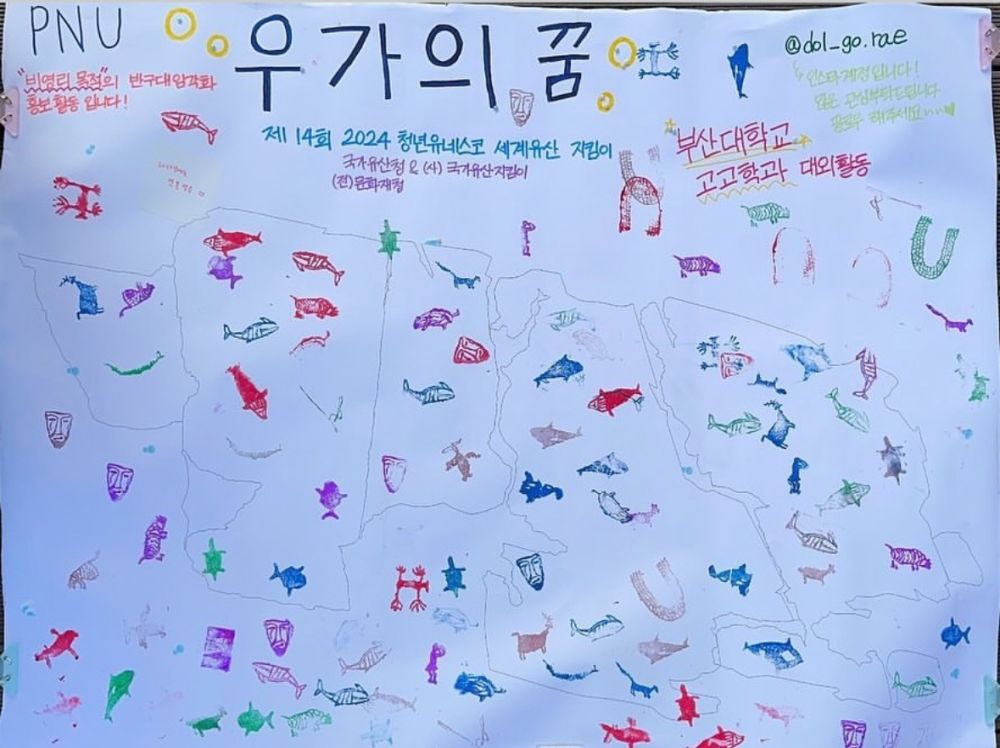 PNU
우가의 꿈
@dol_go.rae
"비영리 목적"의 반구대 암각화
홍보 활동 입니다!
인스타 계정 입니다!
많은 관심 부탁드립니다
팔로우 해주세요~~♥
제 14회 2024 청년유네스코 세계유산 지킴이
국가유산청 & (사) 국가유산지킴이
(전)문화재청
부산대학교
고고학과 대외활동